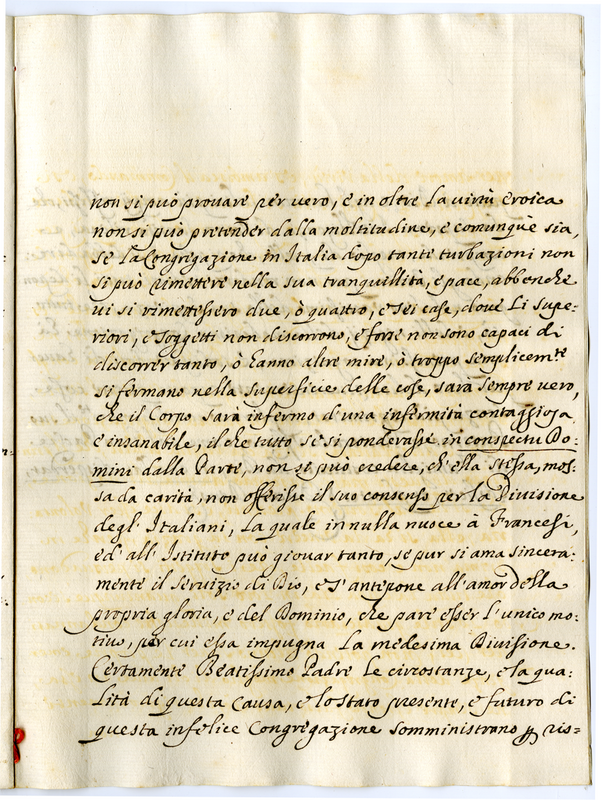 non si può provare per vero, e in oltre la virtù eroica
non si può pretender dalla moltitudine, e comunque sia,
se la Congregazione in Italia dopo tante turbazioni non
si può rimettere nella sua tranquillità, e pace, abbenche
vi si rimettessero due, ò quattro, e sei case, dove li supe:
riori, e soggetti non discorrono, e forse non sono capaci di
discorrer tanto, ò hanno altre mire, ò troppo semplicemte
si fermano nella superficie delle cose, sarà sempre vero,
che il Corpo sarà infermo d'una infermità contaggiosa
e insanabile, il che tutto se si ponderasse in conspectu Do:
mini dalla Parte, non si può credere, ch'ella stessa, mos:
sa da carità, non offerisse il suo consenso per la Divisione
degl'Italiani, la quale in nulla nuoce à Francesi,
ed all'Istituto può giovar tanto, se pur si ama sincera:
mente il servizio di Dio, e s'antepone all'amor della
propria gloria, e del Dominio, che pare esser l'unico mo:
tivo, per cui essa impugna la medesima Divisione.
Certamente Beatissimo Padre le circostanze, e la qua:
lità di questa Causa, e lo stato presente, e futuro di
questa infelice Congregazione somministrano ris=